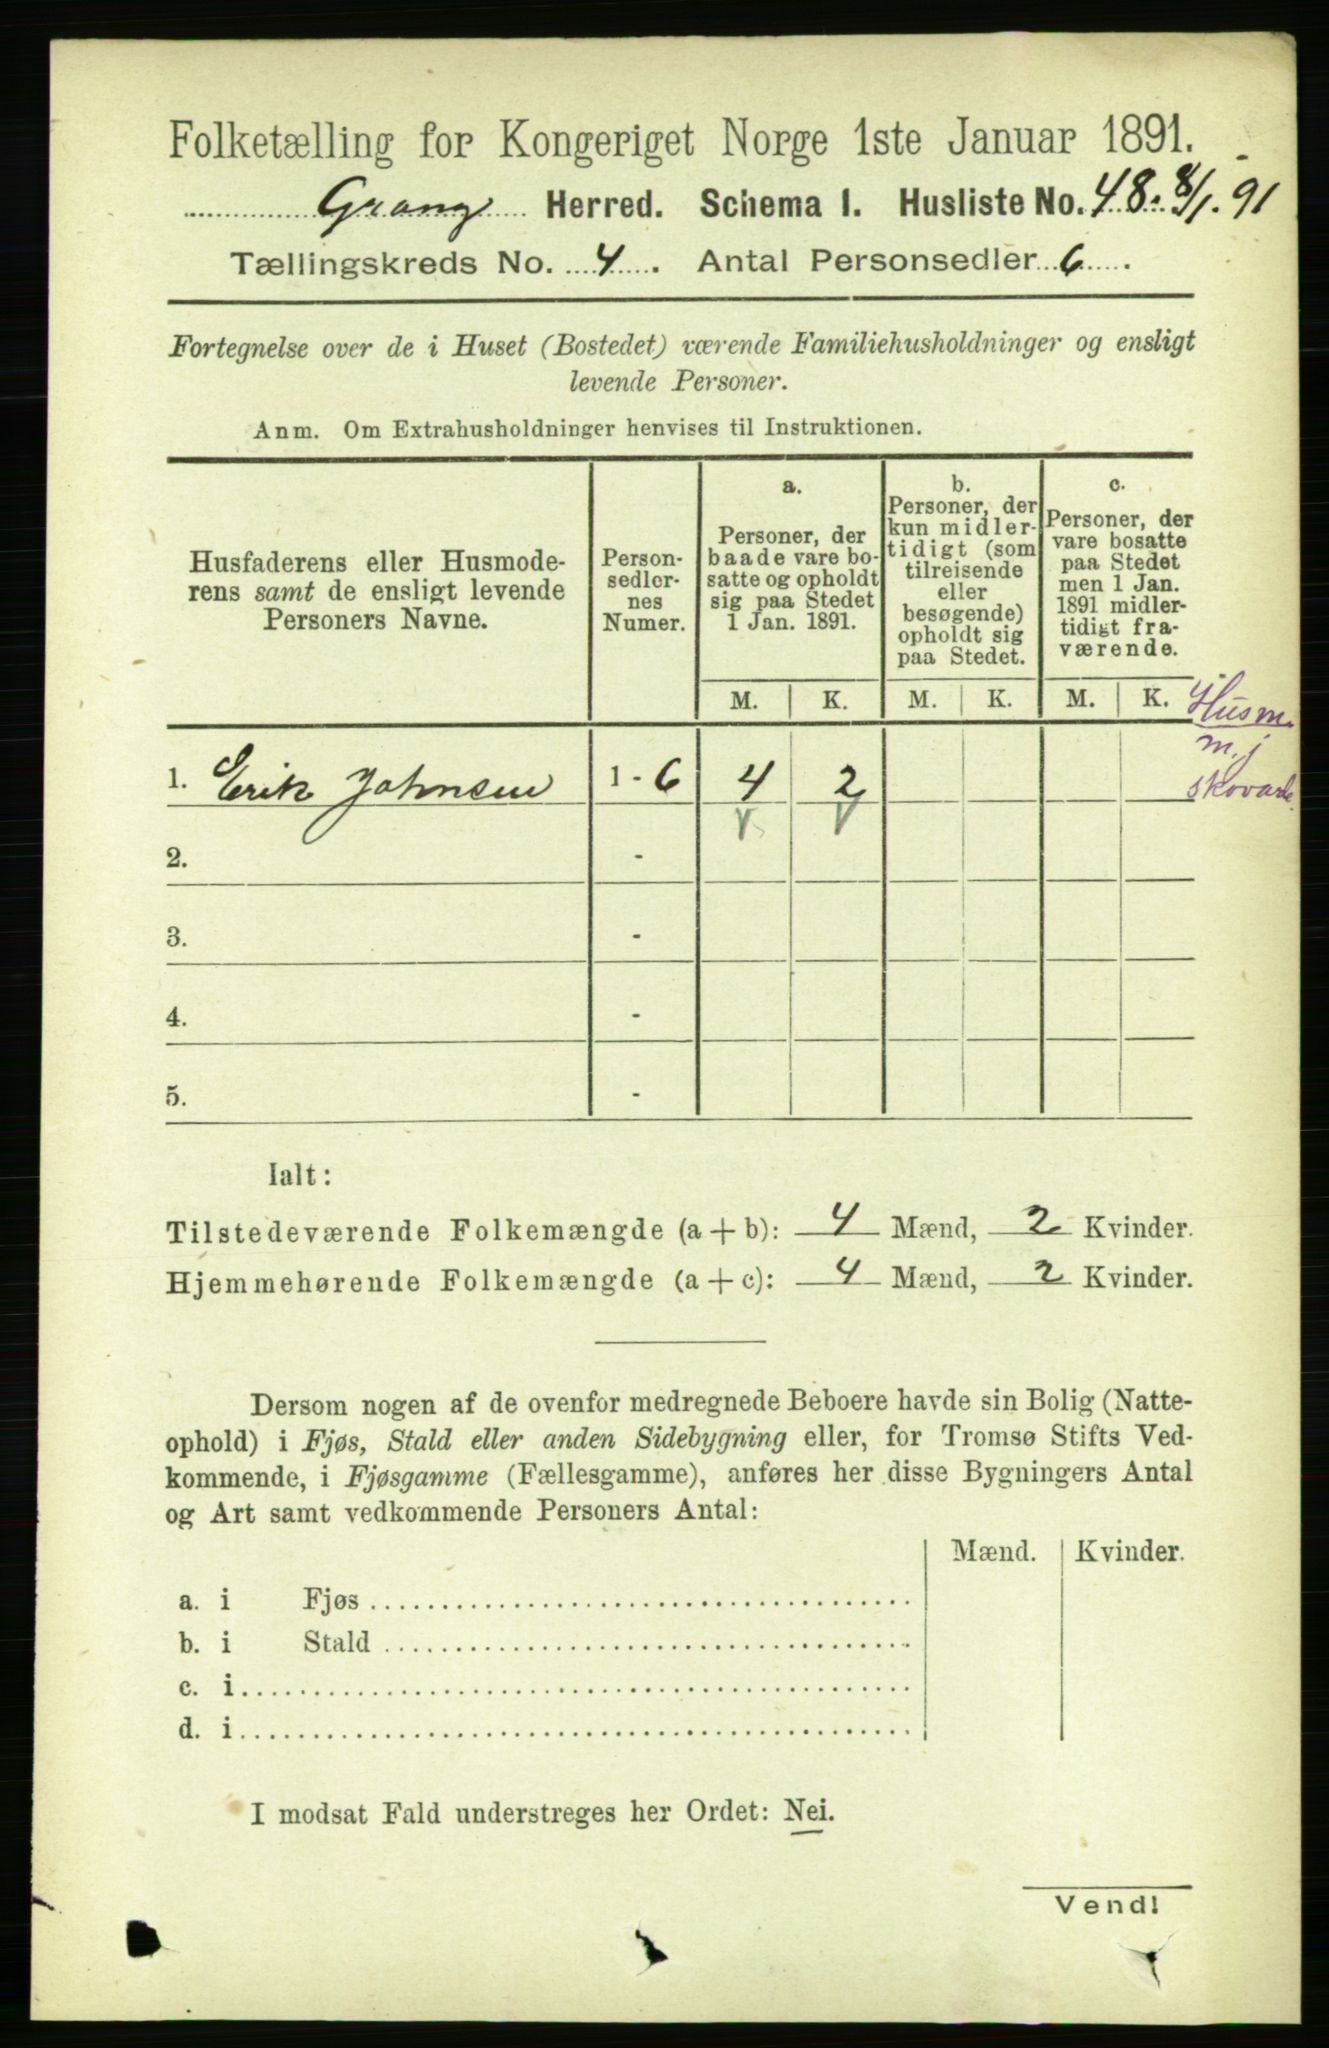 Folketælling for Kongeriget Norge 1ste Januar 1891.
Grong Herred. Schema 1. Husliste No. 48. 8/1. 91
Tællingskreds No. 4. Antal Personsedler 6.
Fortegnelse over de i Huset (Bostedet) værende Familiehusholdninger og ensligt
levende Personer.
Anm. Om Extrahusholdninger henvises til Instruktionen.
Husfaderens eller Husmode-
rens samt de ensligt levende
Personers Navne.
Person-
sedler-
nes
Numer.
a.
Personer, der
baade vare bo-
satte og opholdt
sig paa Stedet
1 Jan. 1891.
b.
Personer, der
kun midler-
tidigt (som
tilreisende
eller
besøgende)
opholdt sig
paa Stedet.
c.
Personer, der
vare bosatte
paa Stedet
men 1 Jan.
1891 midler-
tidigt fra-
værende.
M. K. M. K. M. K.
Husm.
m. j
skovarb.
1. Erik Johnsen 1 - 6 4 2
2. -
3. -
4. -
5. -
Ialt:
Tilstedeværende Folkemængde (a + b): 4 Mænd, 2 Kvinder.
Hjemmehørende Folkemængde (a + c): 4 Mænd, 2 Kvinder.
Dersom nogen af de ovenfor medregnede Beboere havde sin Bolig (Natte-
ophold) i Fjøs, Stald eller anden Sidebygning eller, for Tromsø Stifts Ved-
kommende, i Fjøsgamme (Fællesgamme), anføres her disse Bygningers Antal
og Art samt vedkommende Personers Antal:
Mænd. Kvinder.
a. i Fjøs
b. i Stald
c. i
d. i
I modsat Fald understreges her Ordet: Nei.
Vend!